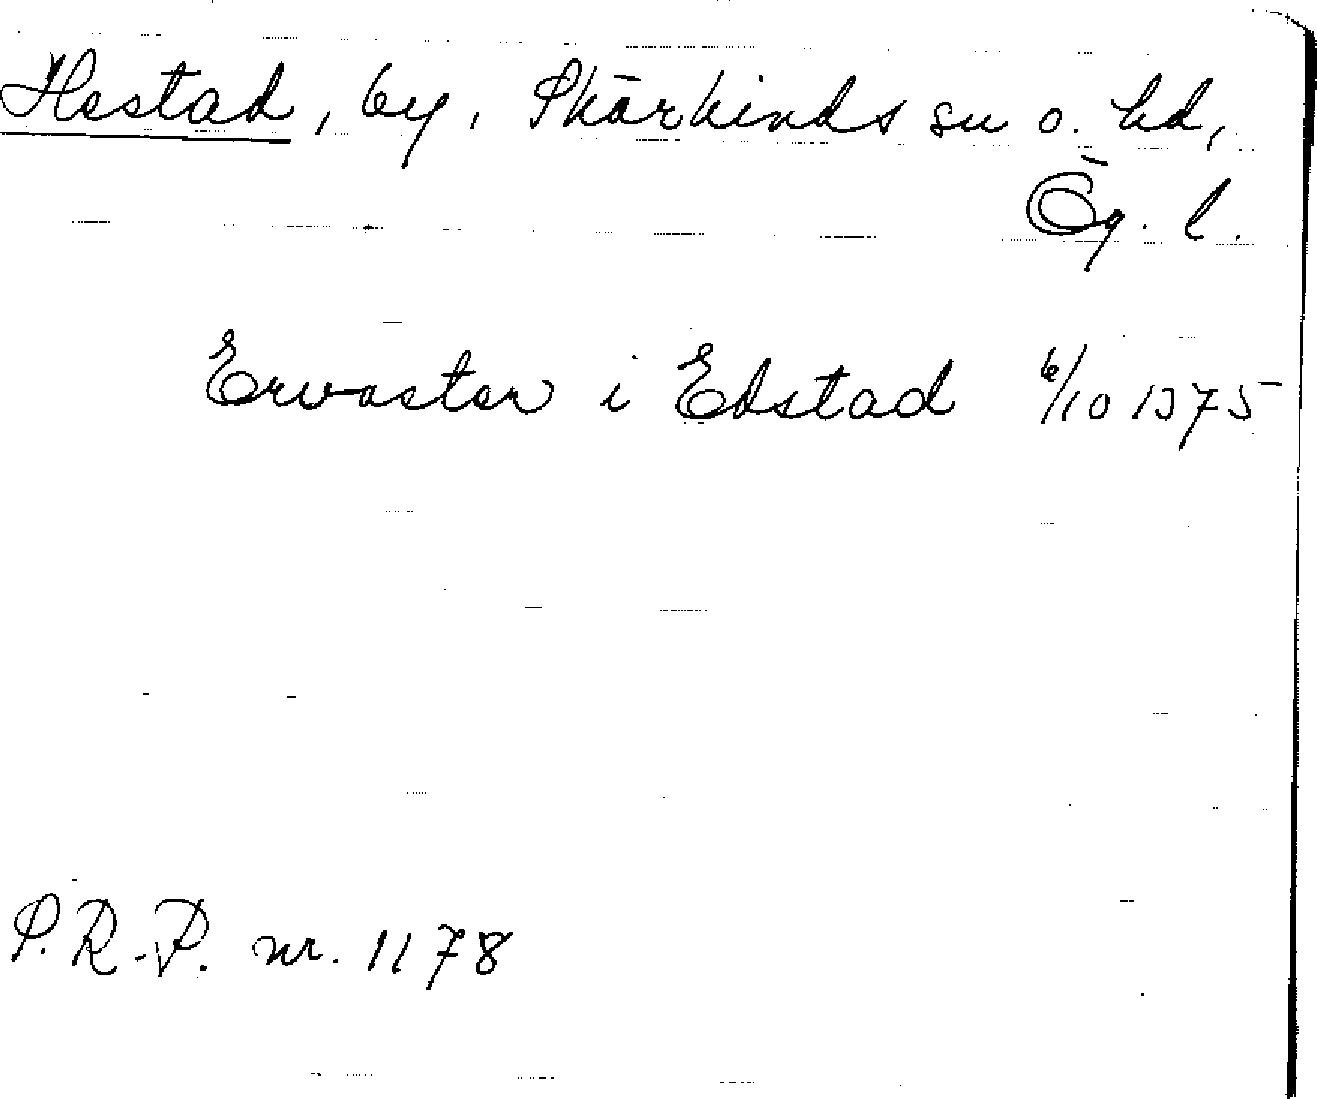 Hestad, by, Skärkinds sn o. hd,
Ög. l.
Ervasten i Edstad 6/10 1375
S.R-P. nr. 1178